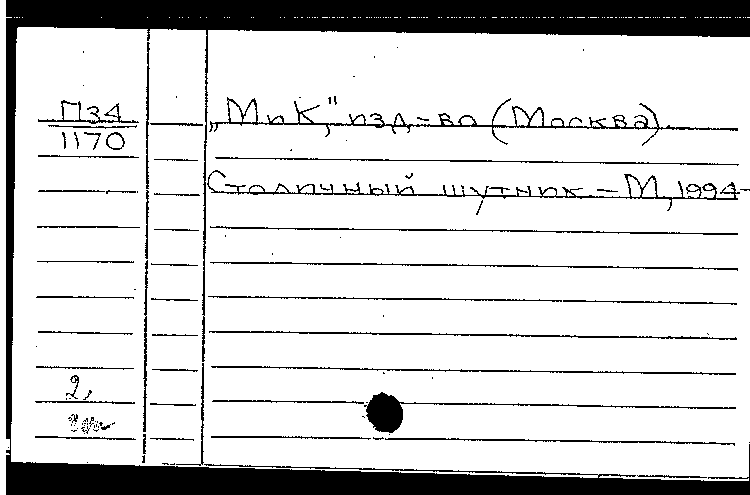 П34
1170
„МиК," изд-во (Москва).
Столичный шутник - М, 1994-
2,